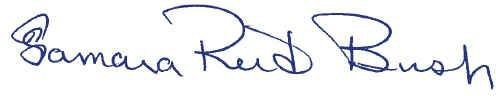 Samara Reid Bush